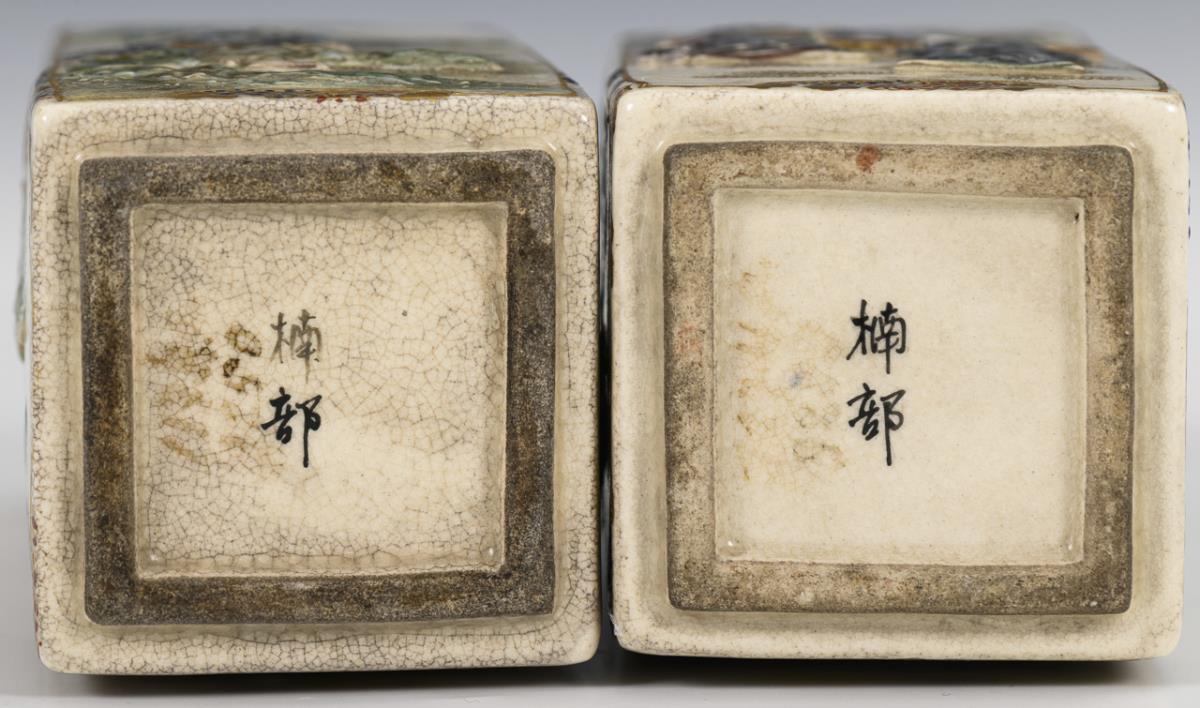 楠
部
楠
部